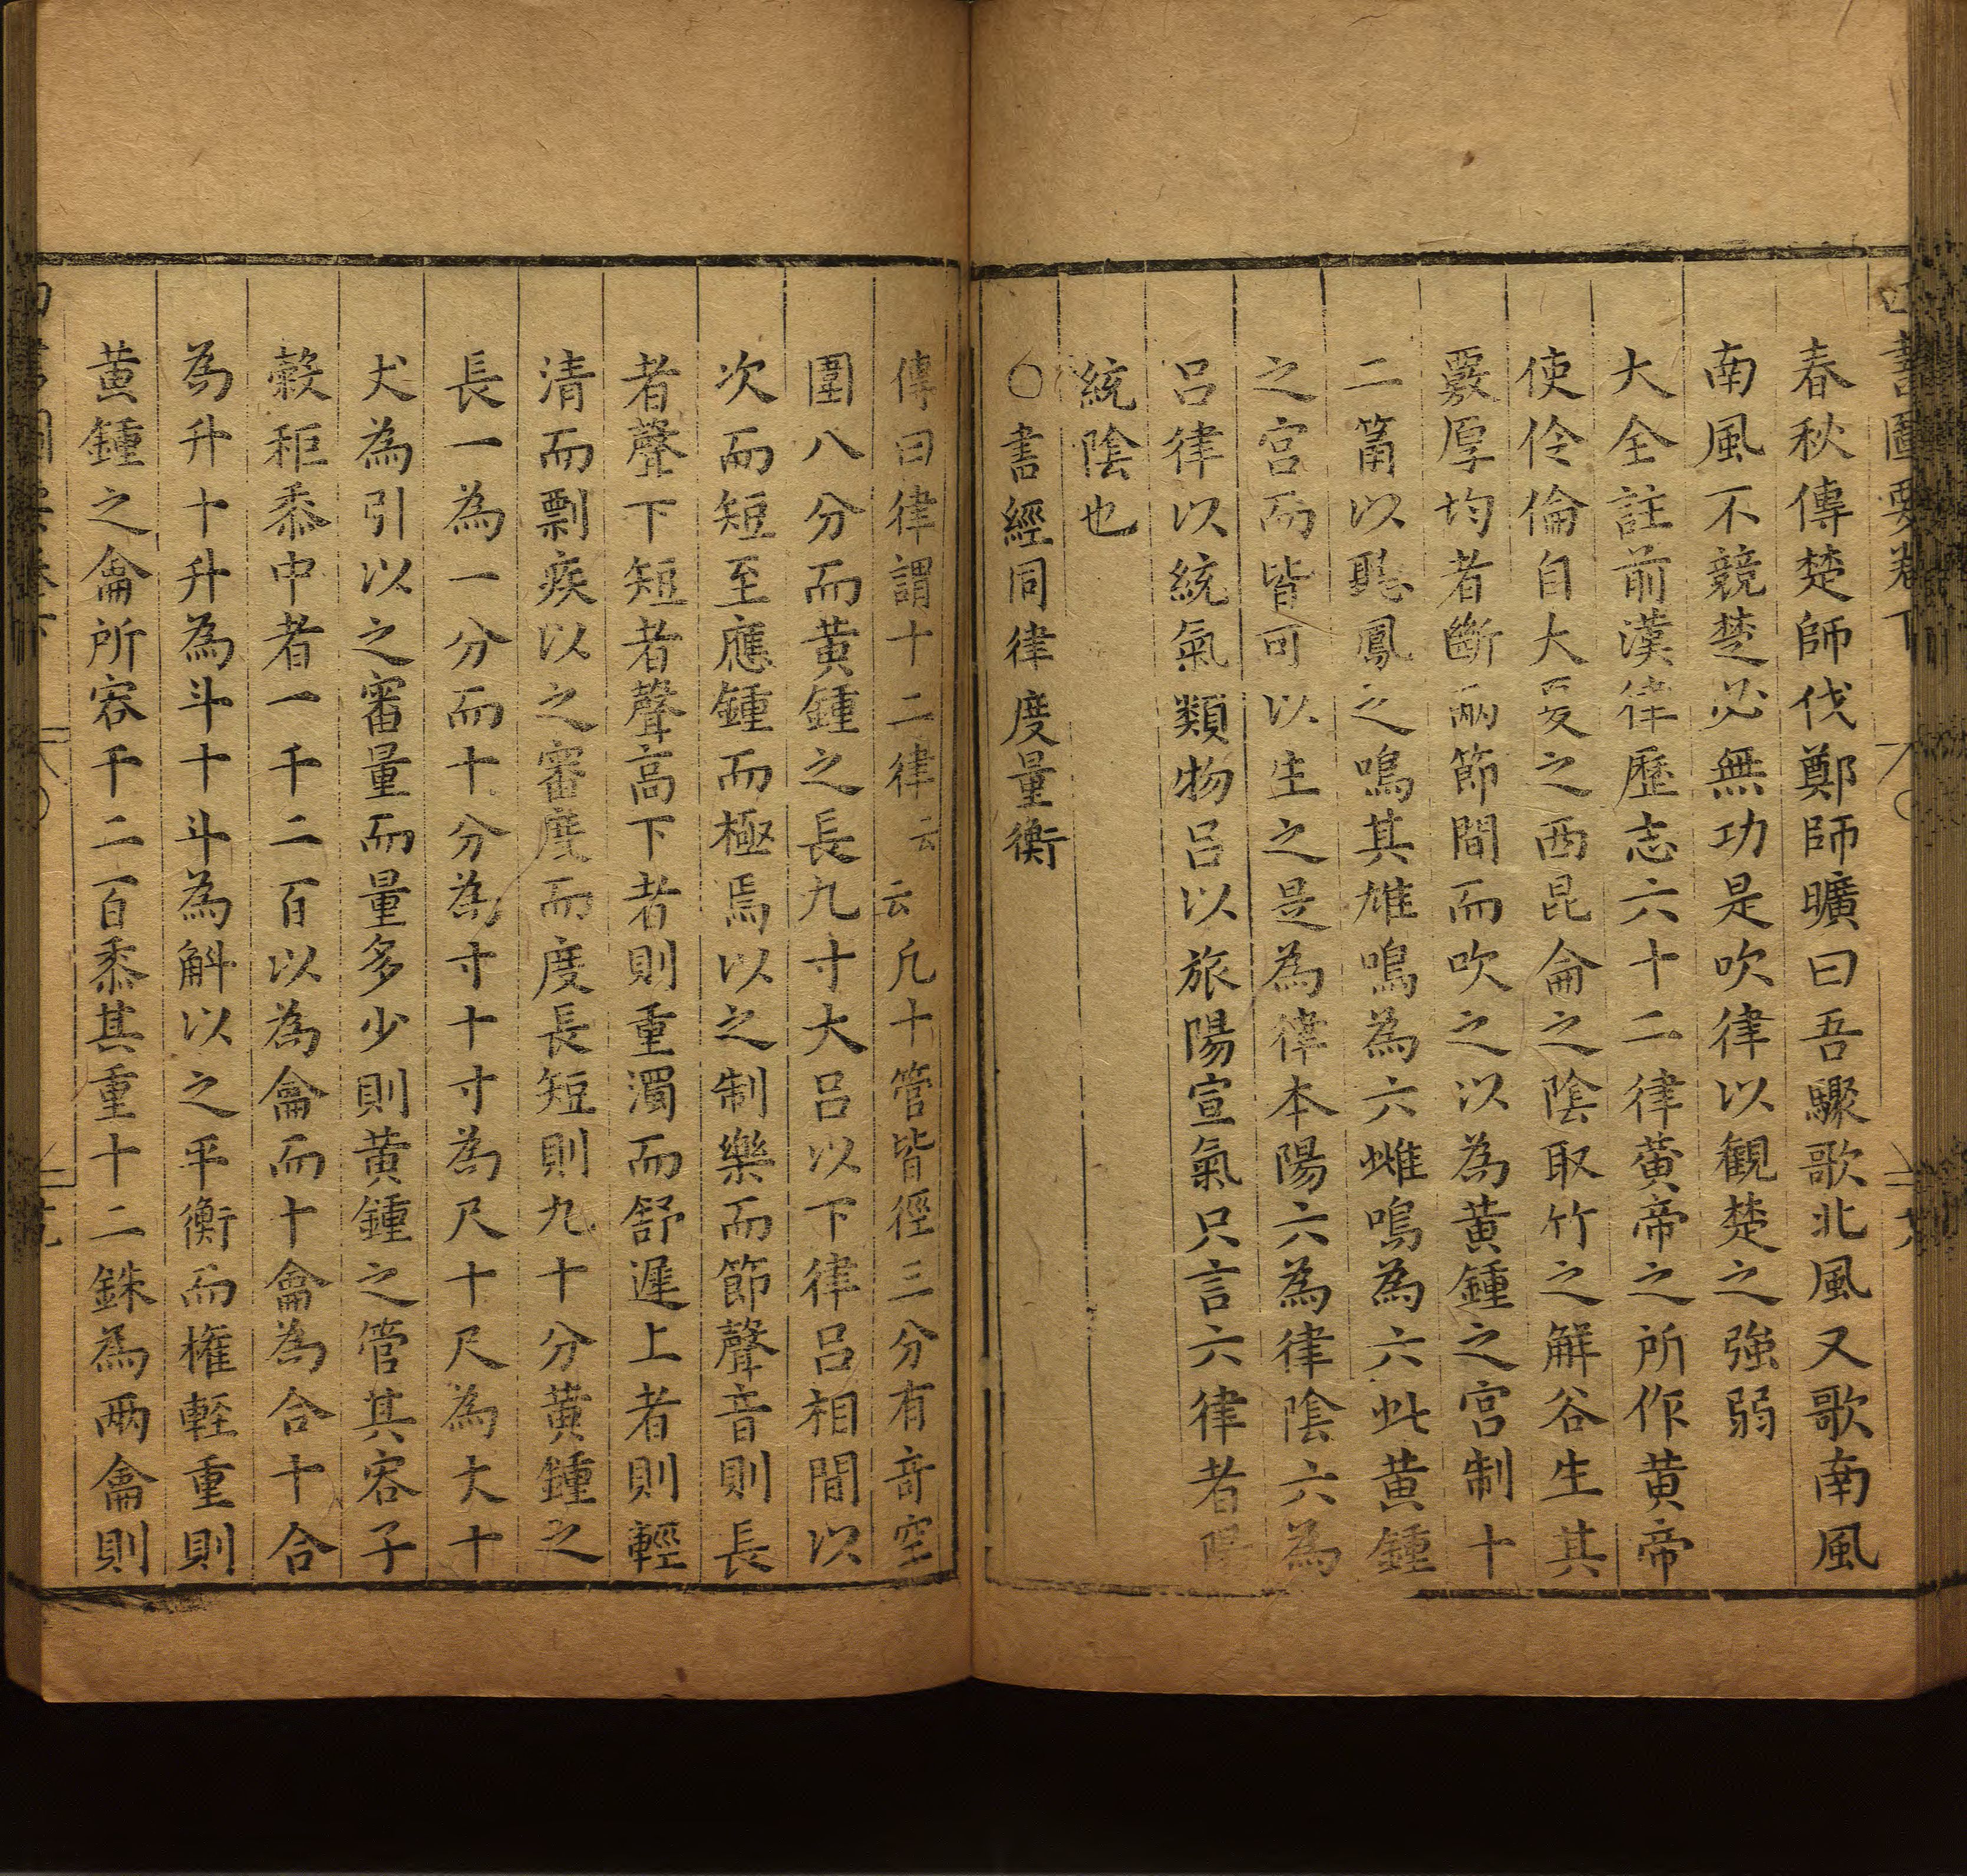 四書圖要卷下
春秋傳楚師伐鄭師曠曰吾驟歌北風又歌南風
南風不競楚必無功是吹律以觀楚之強弱
大全註前漢律歷志六十二律黃帝之所作黃帝
使伶倫自大夏之西昆侖之陰取竹之解谷生其
竅厚均者斷兩節間而吹之以為黃鍾之宮制十
二筩以聽鳳之鳴其雄鳴為六雌鳴為六此黃鍾
之宮而皆可以生之是為律本陽六為律陰六為
呂律以統氣類物呂以旅陽宣氣只言六律者陽
統陰也
○書經同律度量衡
傳曰律謂十二律云云凡十管皆徑三分有奇空
圍八分而黃鍾之長九寸大呂以下律呂相間以
次而短至應鍾而極焉以之制樂而節聲音則長
者聲下短者聲高下者則重濁而舒遲上者則輕
清而剽疾以之審度而度長短則九十分黃鍾之
長一為一分而十分為寸十寸為尺十尺為大十
犬為引以之審量而量多少則黃鍾之管其容子
穀秬黍中者一千二百以為龠而十龠為合十合
為升十升為斗十斗為斛以之平衡而權輕重則
黃鍾之龠所容千二百黍其重十二銖為兩龠則